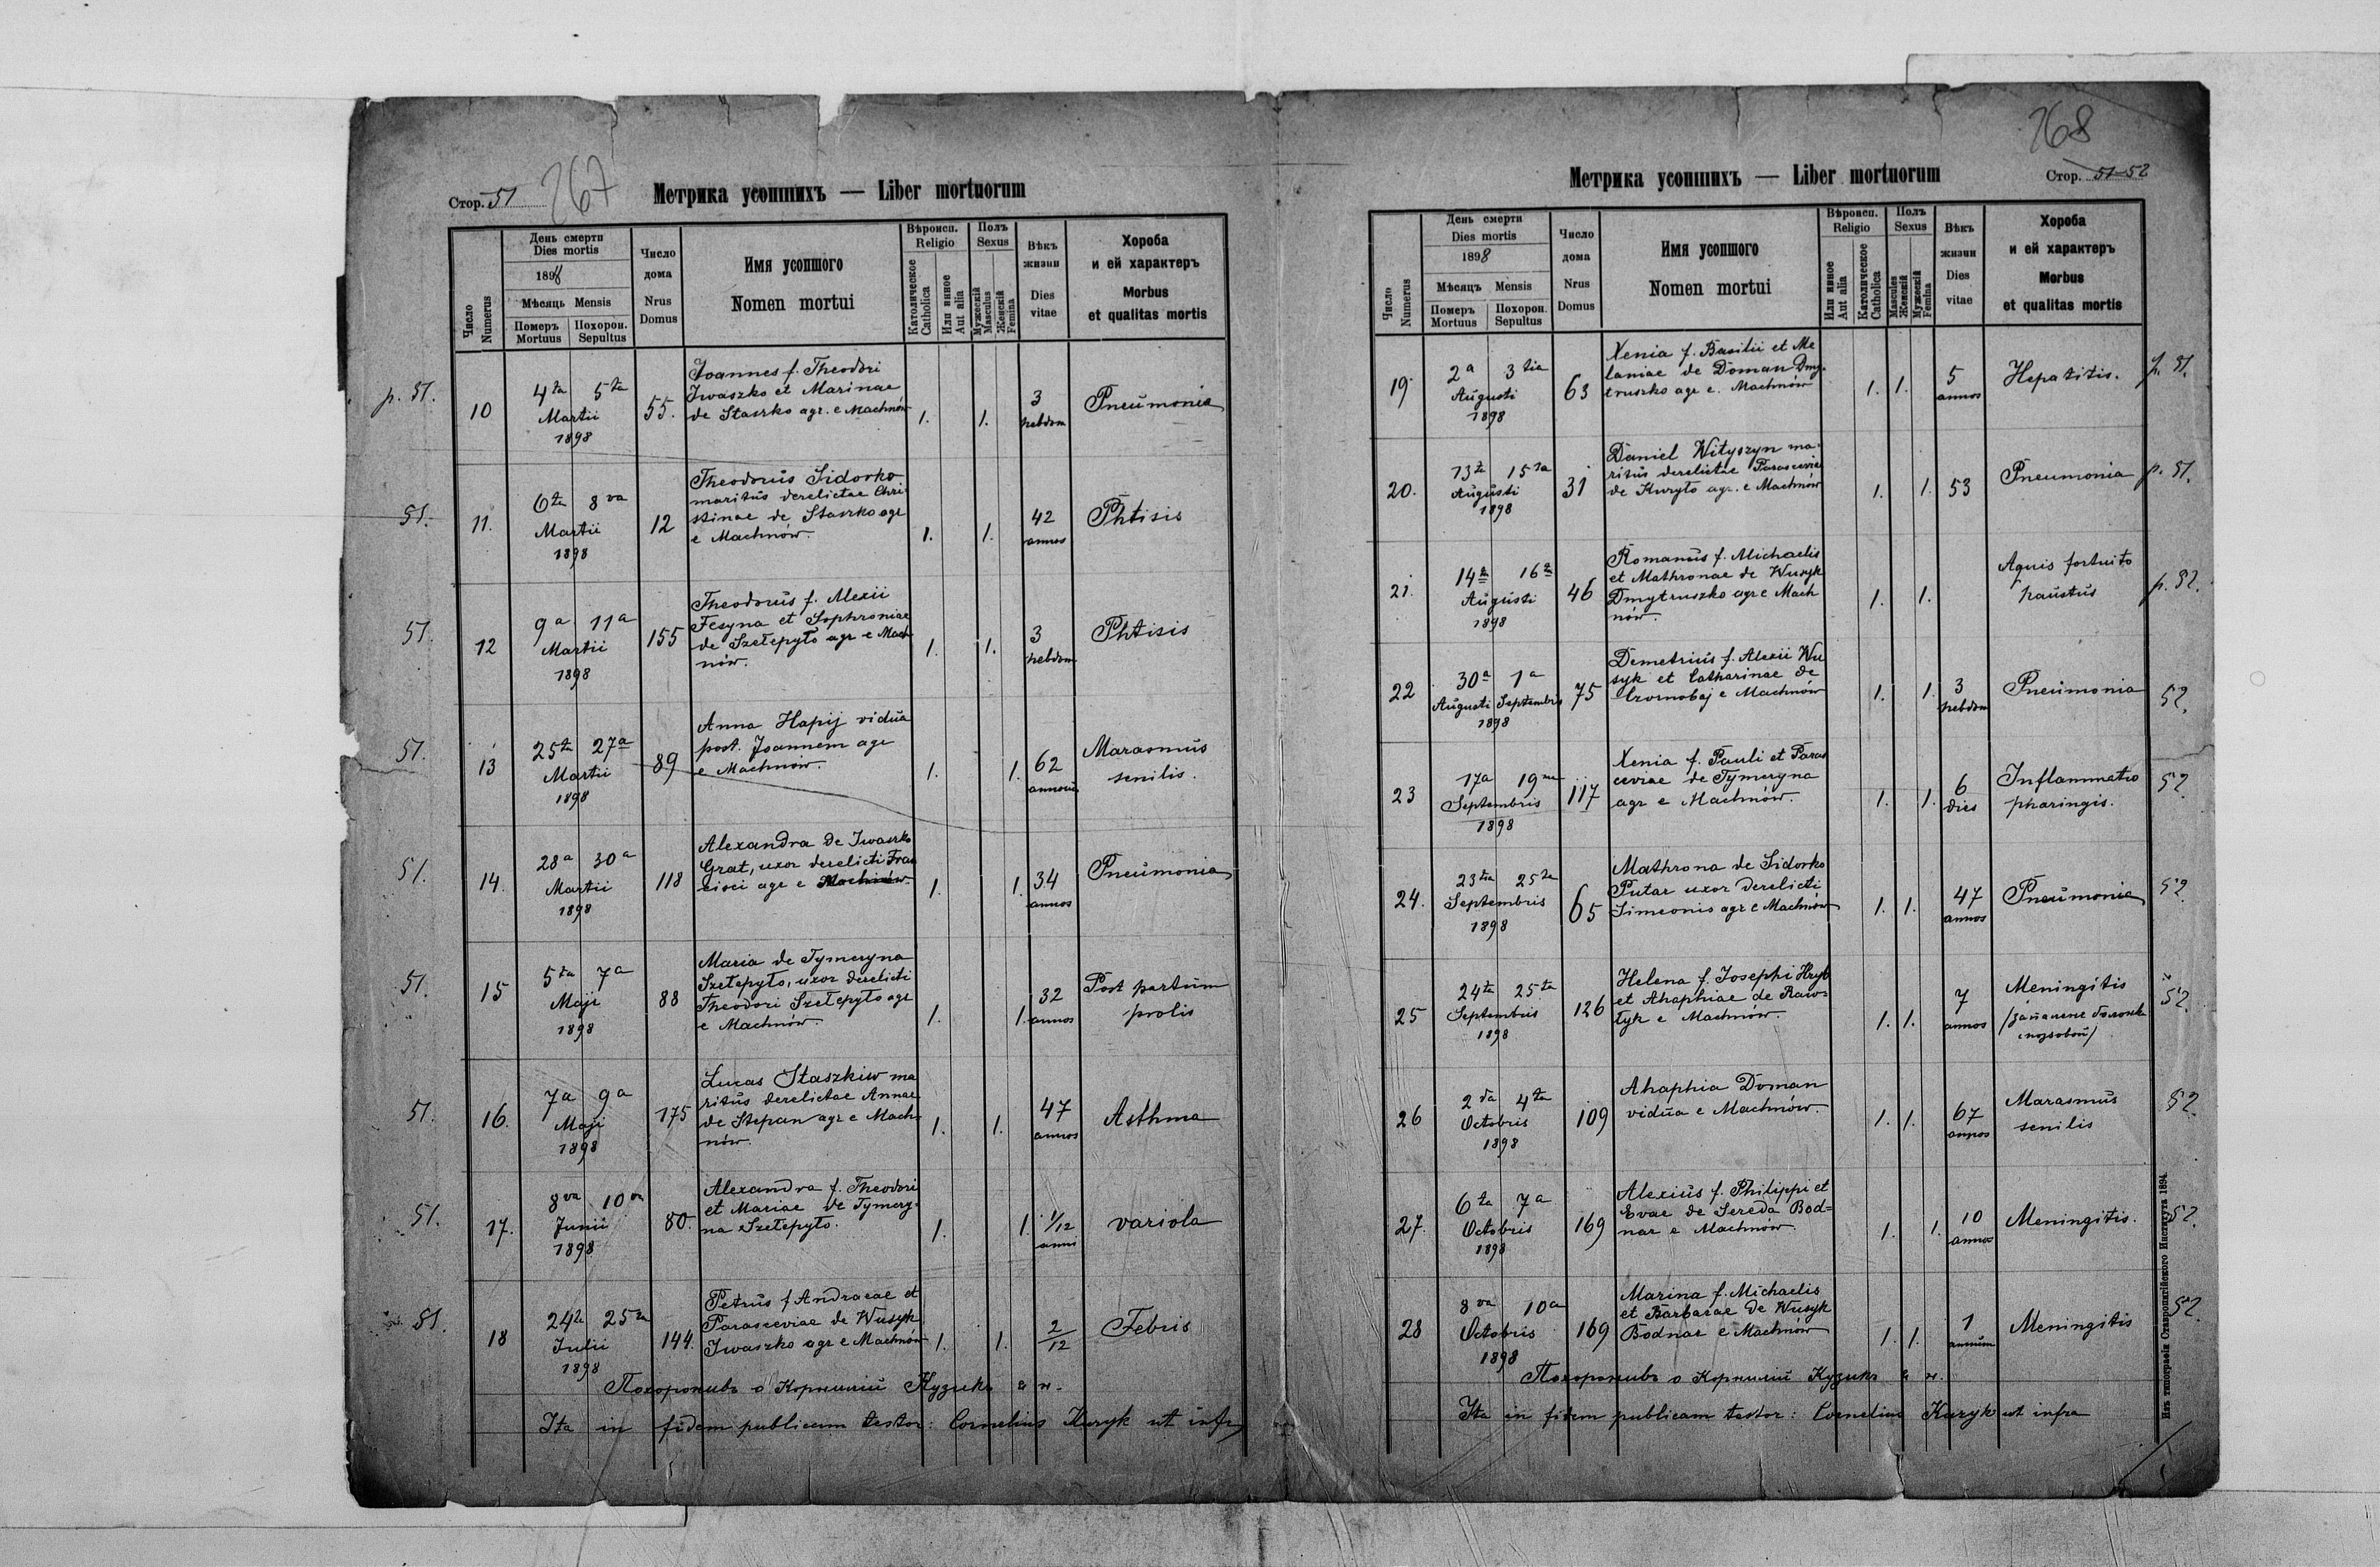 Стор. 51 267
Метрика усопшихъ — Liber mortuorum
Число
Numerus
День смерти
Dies mortis
1898
Мѣсяць Mensis
Померъ
Mortuus
Похорон.
Sepultus
Число
дома
Nrus
Domus
Имя усопшого
Nomen mortui
Вѣроисп.
Religio
Католическое
Catholica
Или инное
Aut alia
Полъ
Sexus
Мужескій
Masculus
Женскій
Femina
Вѣкъ
жизни
Dies
vitae
Хороба
и ей характеръ
Morbus
et qualitas mortis
p. 51. 10 4ta 5ta
Martii
1898
55.
Joannes f. Theodori
Iwaszko et Marinae
de Staszko agr. e Machnów
1. 1.
3
hebdom
Pneumonia
51. 11. 6ta 8va
Martii
1898
12
Theodorus Sidorko
maritus derelictae Chri
stinae de Staszko agr
e Machnów.
1. 1.
42
annos
Phtisis
51. 12 9a 11a
Martii
1898
155
Theodorus f. Alexii
Fesyna et Sophroniae
de Szełepyło agr e Mach
nów.
1. 1.
3
hebdom
Phtisis
51. 13 25ta 27a
Martii
1898
89
Anna Hapij vidua
post. Joannem agr
e Machnów.
1. 1.
62
annorum
Marasmus
senilis.
51. 14. 28a 30a
Martii
1898
118
Alexandra de Iwaszko
Grat, uxor derelicti Fran
cisci agr e Machnów
1. 1.
34
annos
Pneumonia
51. 15 5ta 7a
Maji
1898
88
Maria de Tymeryna
Szełepyło, uxor derelicti
Theodori Szełepyło agr
e Machnów.
1. 1.
32
annos
Post partum
prolis
51. 16. 7a 9a
Maji
1898
175
Lucas Staszkiw ma
ritus derelictae Annae
de Stepan agr e Mach
nów.
1. 1.
47
annos
Asthma
51. 17. 8va 10va
Junii
1898
80.
Alexandra f. Theodori
et Mariae de Tymery-
na Szełepyło.
1. 1.
1/12
anni
variola
51. 18 24ta 25ta
Julii
1898
144.
Petrus f Andraeae et
Parasceviae de Wusyk
Iwaszko agr e Machnów
1. 1.
2/12
Febris
Похоронивъ о Корнилій Кузикъ
Ita in fidem publicam testor: Cornelius Kuzyk ut infra
268
Стор. 51-52
Метрика усопшихъ — Liber mortuorum
Число
Numerus
День смерти
Dies mortis
1898
Мѣсяць Mensis
Померъ
Mortuus
Похорон.
Sepultus
Число
дома
Nrus
Domus
Имя усопшого
Nomen mortui
Вѣроисп.
Religio
Или инное
Aut alia
Католическое
Catholica
Полъ
Sexus
Masculus
Женскій
Мужескій
Femina
Вѣкъ
жизни
Dies
vitae
Хороба
и ей характеръ
Morbus
et qualitas mortis
19. 2a 3tia
Augusti
1898
63
Xenia f. Basilii et Me
laniae de Doman Dmy-
truszko agr e. Machnów
1. 1.
5
annos
Hepatitis. p. 51.
20. 13ta 15ta
Augusti
1898
31
Daniel Wityszyn ma-
ritus derelictae Parasceviae
de Kuryło agr. e Machnów
1. 1.
53
Pneumonia p. 51.
21. 14ta 16ta
Augusti
1898
46
Romanus f. Michaelis
et Mathronae de Wusyk
Dmytruszko agr e Mach
nów.
1. 1.
Aquis fortuito
haustus p. 52.
22 30a 1a
Augusti Septembris
1898
75
Demetrius f. Alexii Wu
syk et Catharinae de
Czornobaj e Machnów
1. 1.
3
hebdom
Pneumonia 52.
23 17a 19na
Septembris
1898
117
Xenia f. Pauli et Paras
ceviae de Tymeryna
agr e Machnów.
1. 1.
6
dies
Inflammatio
pharingis. 52.
24. 23tia 25ta
Septembris
1898
65
Mathrona de Sidorko
Putar uxor derelicti
Simeonis agr e Machnów
1. 1.
47
annos
Pneumonia 52.
25 24ta 25ta
Septembris
1898
126
Helena f. Josephi Hryb
et Ahaphiae de Raw-
łyk e Machnów.
1. 1.
7
annos
Meningitis 52.
26 2da 4ta
Octobris
1898
109
Ahaphia Doman
vidua e Machnów.
1. 1.
67
annos
Marasmus
senilis 52.
27. 6ta 7a
Octobris
1898
169
Alexius f. Philippi et
Evae de Sereda Bod-
nar e Machnów.
1. 1.
10
annos
Meningitis. 52.
28 8va 10a
Octobris
1898
169
Marina f. Michaelis
et Barbarae de Wusyk
Bodnar e Machnów
1. 1.
1
annum
Meningitis 52.
Похоронивъ о Корнилій Кузикъ
Ita in fidem publicam testor: Cornelius Kuzyk ut infra
Изъ типографіи Ставропигійского Института 1894.